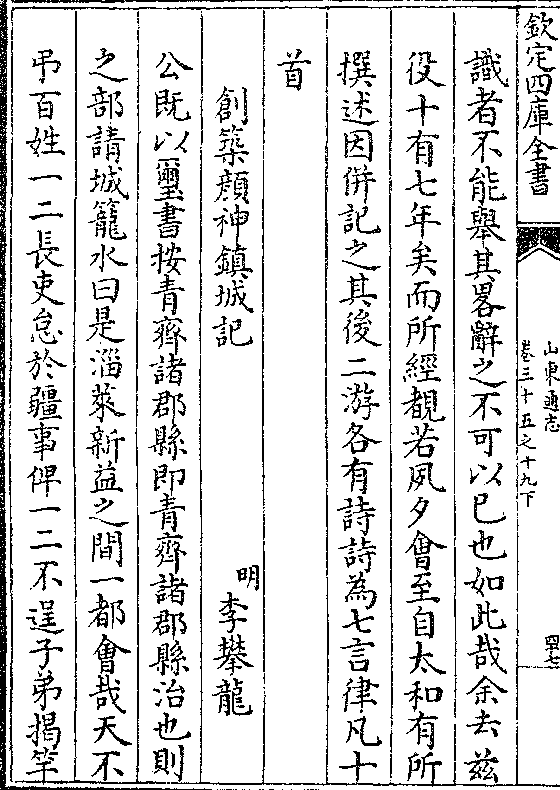 欽定四庫全書
山東通志
卷三十五之十九下
四七
識者不能舉其畧辭之不可以已也如此哉余去兹
役十有七年矣而所經覩若夙夕會至自太和有所
撰述因併記之其後二游各有詩詩為七言律凡十
首
創築顔神鎮城記
明李攀龍
公既以璽書按青齊諸郡縣即青齊諸郡縣治也則
之部請城籠水曰是淄萊新益之間一都會哉天不
弔百姓一二長吏怠於疆事俾一二不逞子弟揭竿